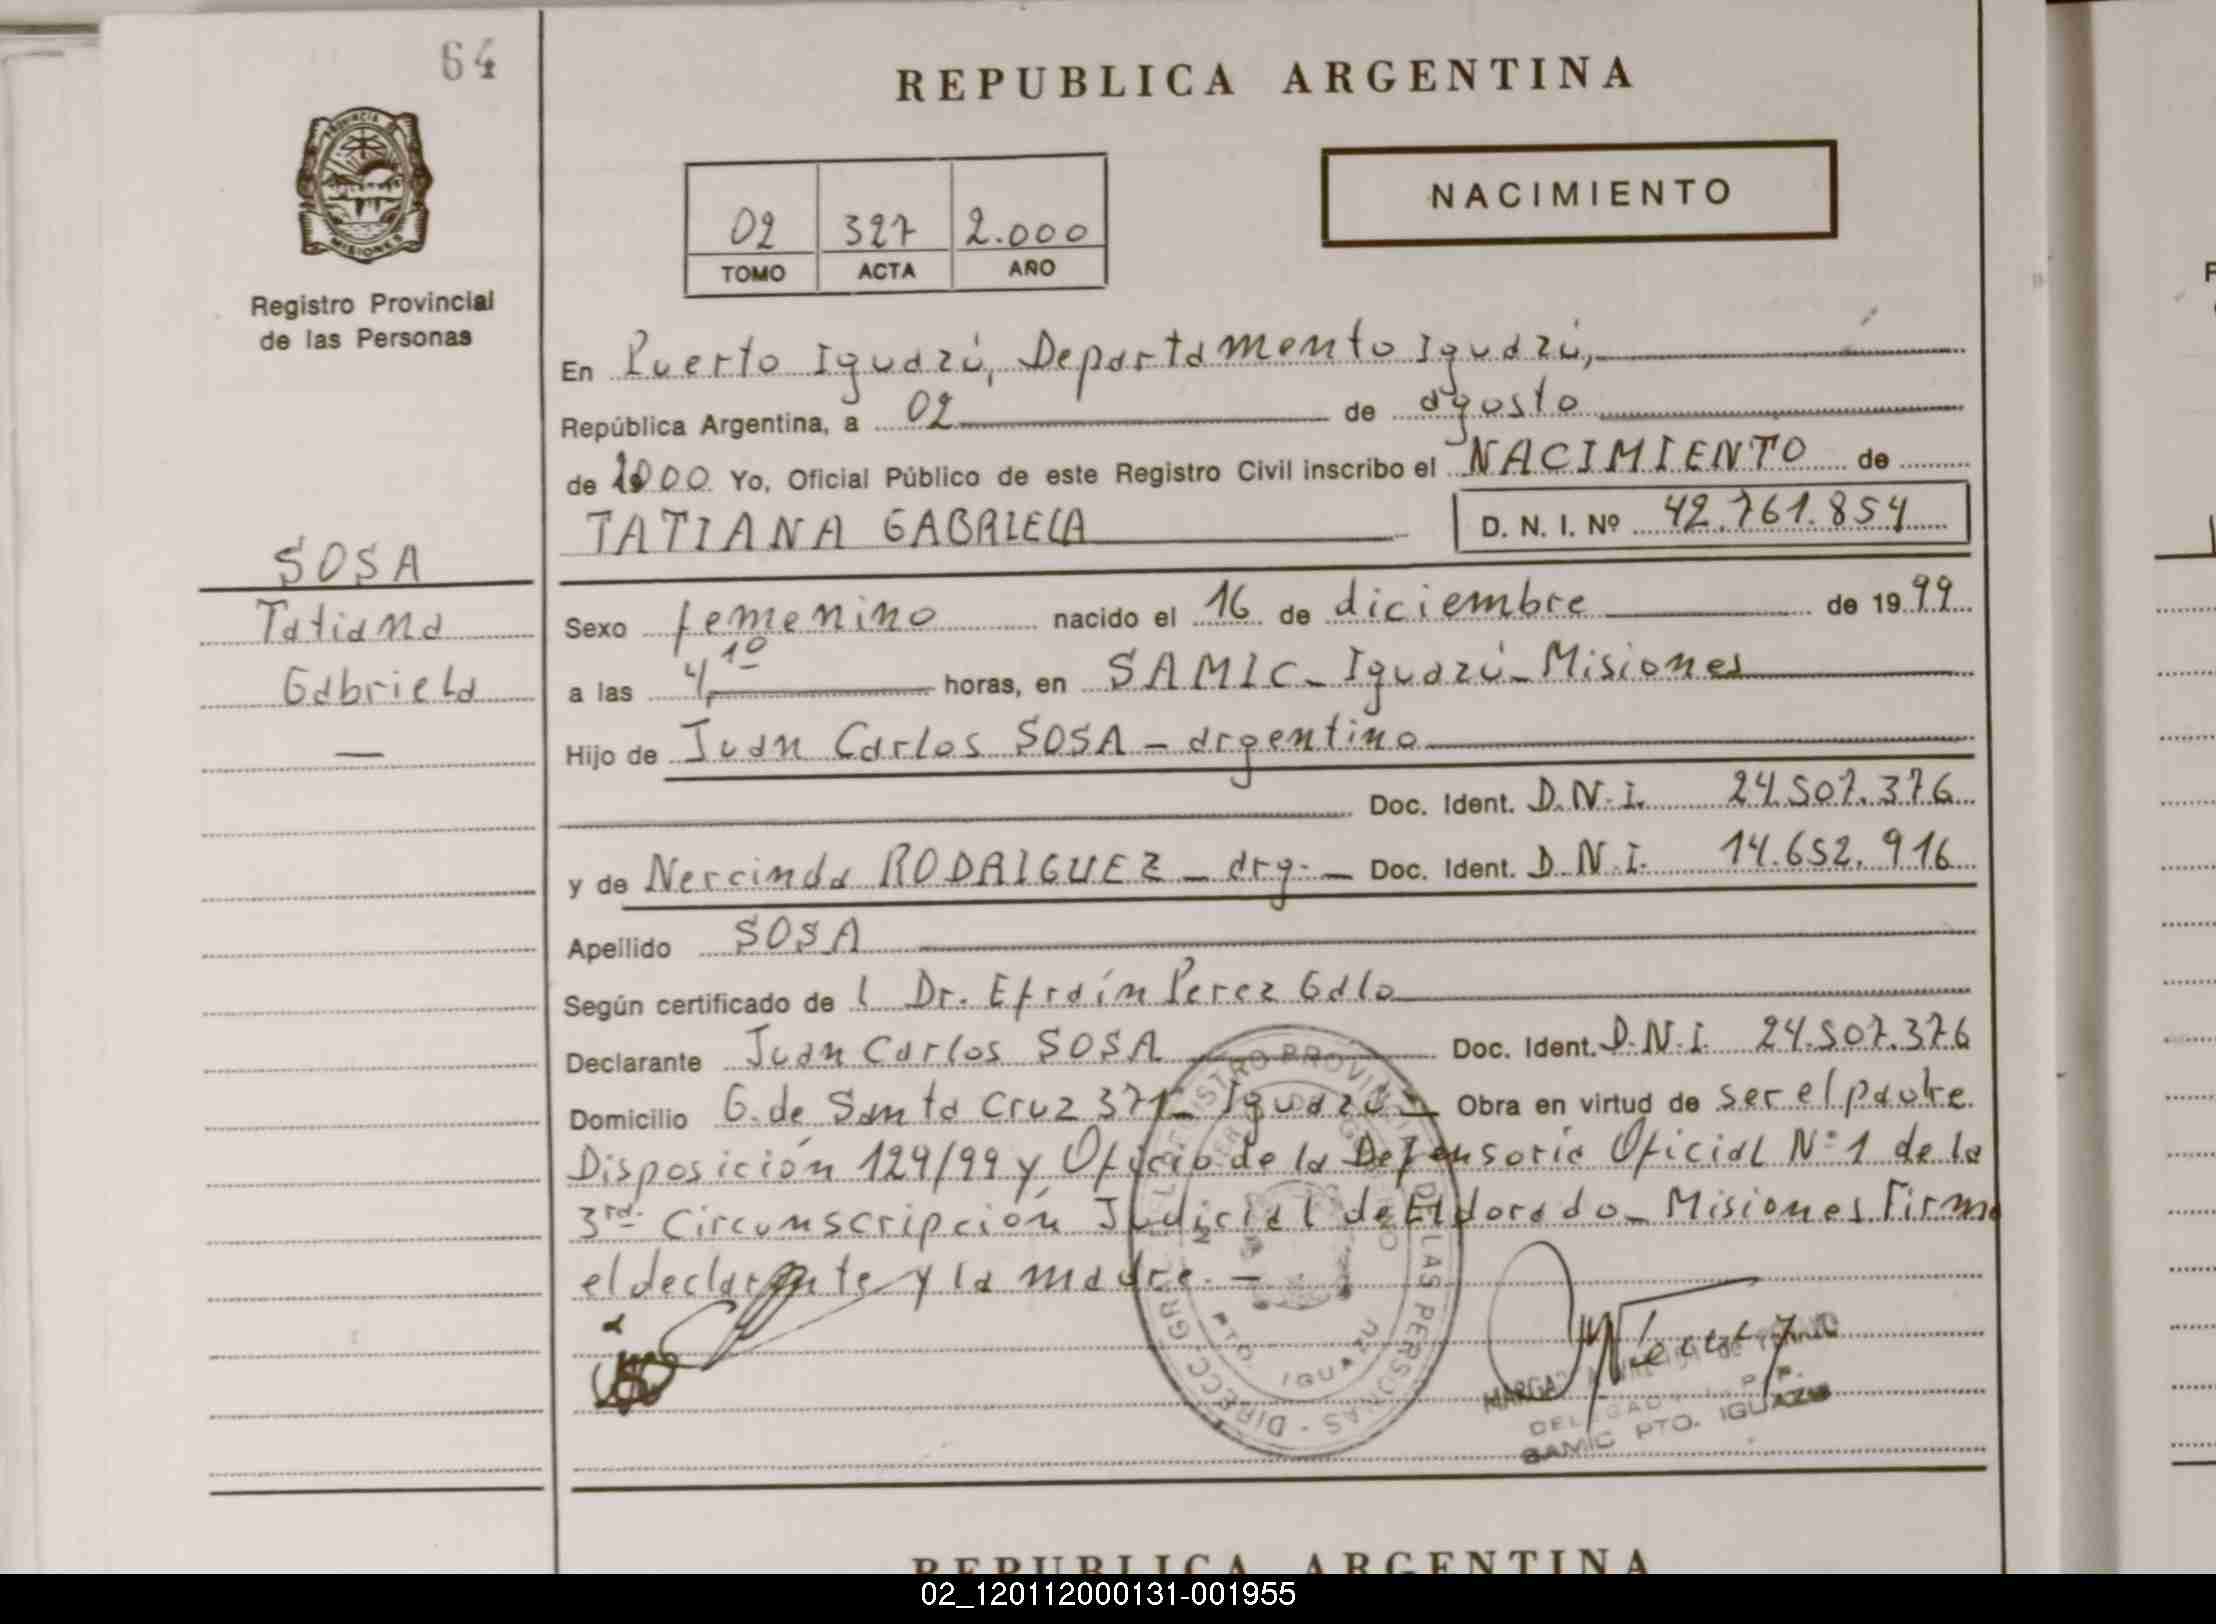 64
REPUBLICA ARGENTINA
PROVINCIA DE
MISIONES
Registro Provincial
de las Personas
NACIMIENTO
02 327 2.000
TOMO ACTA AÑO
En Puerto Iguazú, Departamento Iguazú,
República Argentina, a 02 de agosto
de 2000 Yo, Oficial Público de este Registro Civil inscribo el NACIMIENTO de
TATIANA GABRIELA D. N. I. Nº 42.761.854
SOSA
Tatiana
Gabriela
—
Sexo femenino nacido el 16 de diciembre de 1999
a las 4,10 horas, en SAMIC - Iguazú - Misiones
Hijo de Juan Carlos SOSA - argentino
Doc. Ident. D.N.I. 24.507.376
y de Nercinda RODRIGUEZ - arg. - Doc. Ident. D.N.I. 14.652.916
Apellido SOSA
Según certificado de l Dr. Efraín Perez Galo
Declarante Juan Carlos SOSA Doc. Ident. D.N.I. 24.507.376
Domicilio G. de Santa Cruz 371 - Iguazú - Obra en virtud de ser el padre
Disposición 129/99 y Oficio de la Defensoría Oficial Nº 1 de la
3ra. Circunscripción Judicial de Eldorado - Misiones. Firma
el declarante y la madre. -
REGISTRO PROVINCIAL DE LAS PERSONAS - DIRECC. GRAL.
PTO. IGUAZU
DELEGADA R.P.P.
SAMIC PTO. IGUAZU
REPUBLICA ARGENTINA
02_120112000131-001955